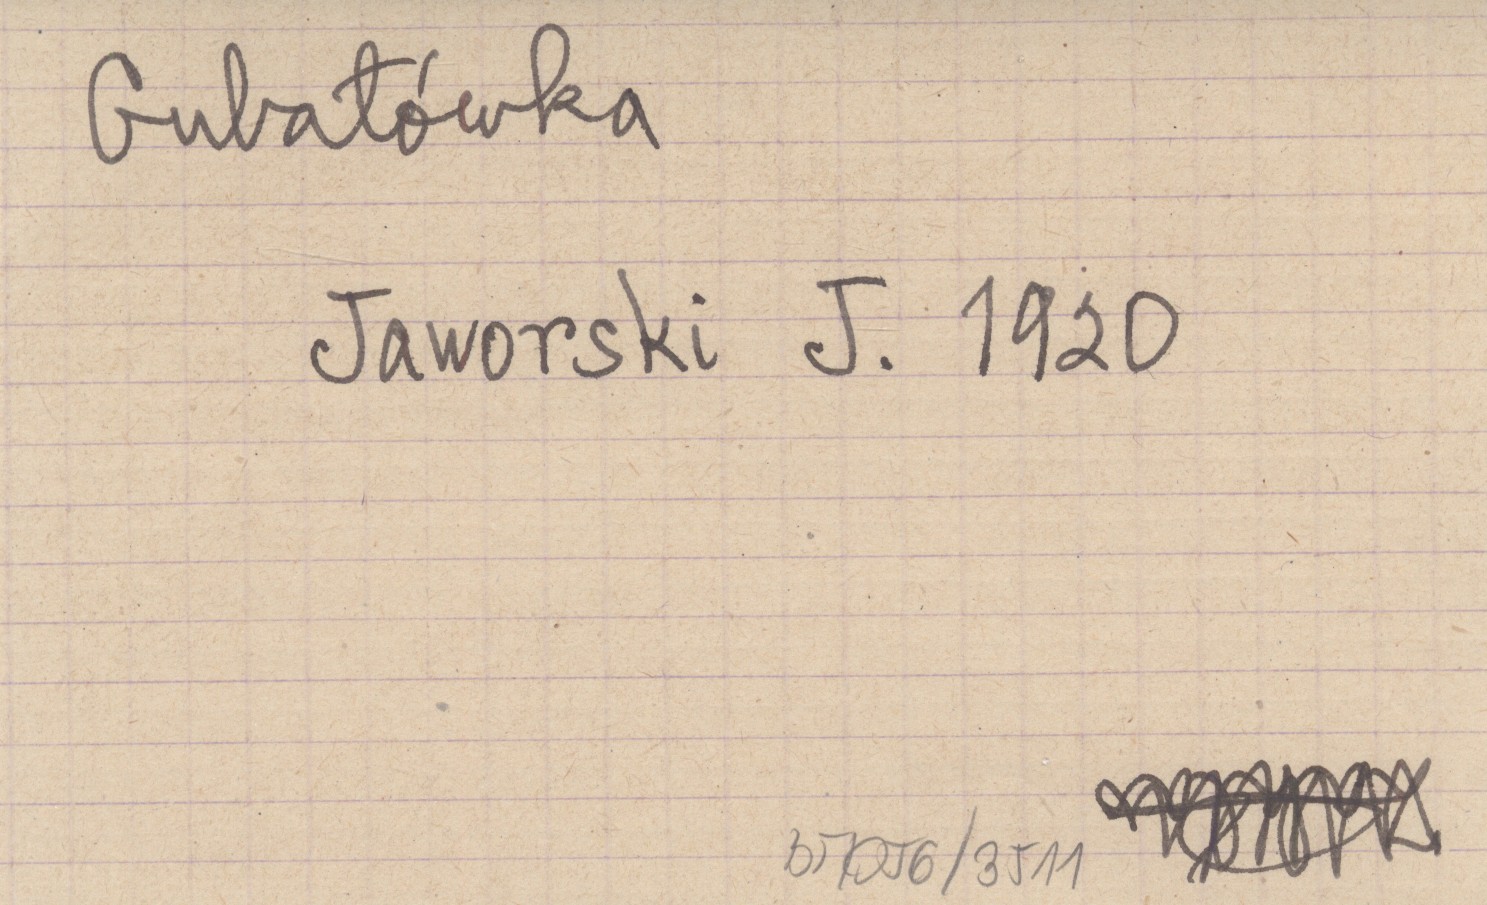 Gubałówka
Jaworski J. 1920